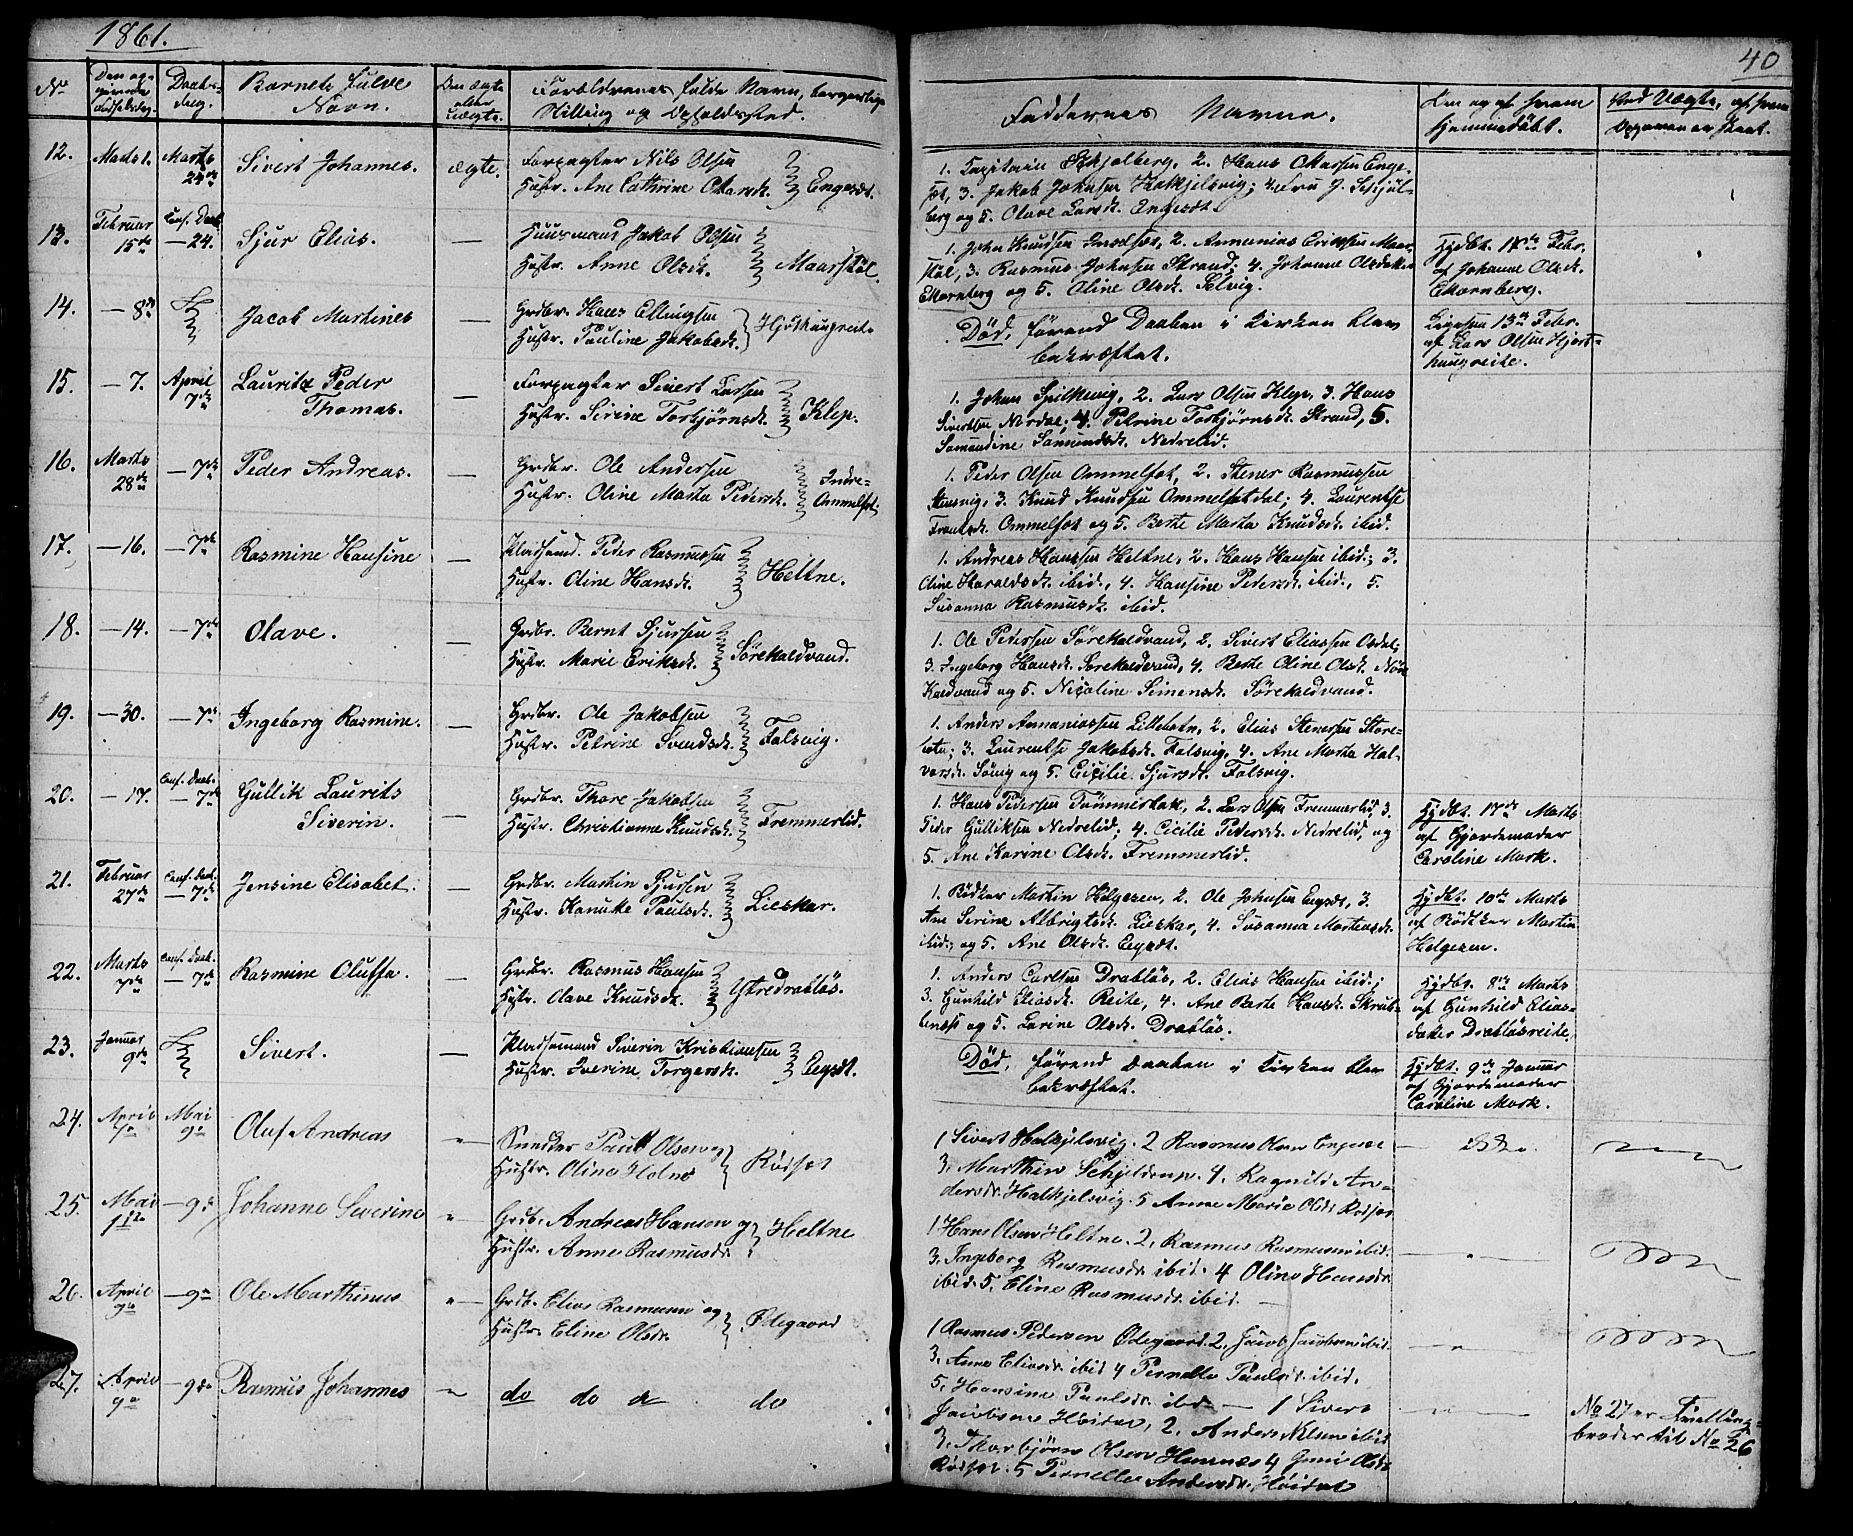 1861.
40
No
Den op-
givende
Fødselsdag.
Daabs-
dag.
Barnets fulde
Navn.
Om ægte
eller
uægte.
Forældrenes fulde Navn, borgerlige
Stilling og Opholdssted.
Faddernes Navne.
Om og af hvem
hjemmedøbt.
12. Marts 1. Marts
24de
Sivert Johannes. ægte.
Forpagter Nils Olsen
Hustr. Ane Cathrine Olarsdt. Engesdt.
1. Capitain Schjelberg, 2. Hans Olarsen Enge-
set, 3. Jakob Johnsen Halkjelsvig; 4. Fru J. Schjøl-
berg og 5. Olave Larsdt. Engesdt.
13. Februar
15de
Conf. Daab
— 24.
Sjur Elias. —
Huusmand Jakob Olsen
Hustr. Anne Olsdt. Maarstøl.
1. John Knudsen Innselset, 2. Annanias Eriksen Maar-
støl, 3. Rasmus Johnsen Strand; 4. Johanne Olsdatter
Mornberg og 5. Oline Olsdt. Selvig.
Hjdbt. 18de Febr.
af Johanne Olsdt.
Mornberg.
14. — 8de
Jacob Martines —
Grdbr. Hans Ellingsen
Hustr. Pauline Jakobsdt. Hjorthaugreite
Død, førend Daaben i Kirken blev
bekræftet.
Ligesaa 13de Febr.
af Lars Olsen Hjort-
haugreite.
15. — 7. April
7de
Lauritz Peder
Thomas. —
Forpagter Sivert Larsen
Hustr. Sirine Torbjørnsdt. Klep.
1. Johan Spilkevig, 2. Lars Olsen Klep, 3. Hans
Sivertsen Nordal; 4. Petrine Torbjørnsdt. Strand, 5.
Samundine Samundsdt. Nedrelid.
16. Marts
28de
— 7de
Peder Andreas. —
Grdbr. Ole Andersen
Hustr. Oline Marta Pedersdt. Indre-
Ommelset.
1. Peder Olsen Ommelset, 2. Stener Rasmussen
Stensvig, 3. Knud Knudsen Ommelsetdal; 4. Laurentse
Frantsdt. Ommelset og 5. Berte Marta Knudsdt. ibid.
17. — 16. — 7de
Rasmine Hansine —
Pladsmd. Peder Rasmussen
Hustr. Oline Hansdt. Heltne.
1. Andreas Hanssen Heltne, 2. Hans Hansen ibid.; 3.
Oline Haraldsdt. ibid., 4. Hansine Pedersdt. ibid., 5.
Susanna Rasmusdt. ibid.
18. — 14. — 7de
Olave. —
Grdbr. Bernt Sjursen
Hustr. Marie Eriksdt. Sørekaldvand.
1. Ole Pedersen Sørekaldvand, 2. Sivert Eliassen Osdal;
3. Ingeborg Hansdt. Sørekaldvand, 4. Berte Oline Olsdt. Nøre
Kaldvand og 5. Nicoline Simensdt. Sørekaldvand.
19. — 30. — 7de
Ingeborg Rasmine. —
Grdbr. Ole Jakobsen
Hustr. Petrine Svendsdt. Falsvig.
1. Anders Annaniassen Lillebotn, 2. Elias Stenersen Store-
botn; 3. Laurentse Jakobsdt. Falsvig, 4. Ane Marta Hal-
vorsdt. Søvig og 5. Cicilie Sjursdt. Falsvig.
20. — 17. Conf. Daab.
— 7de
Gullik Laurits
Siverin. —
Grdbr. Thore Jakobsen
Hustr. Christianne Knudsdt. Fremmerlid.
1. Hans Pedersen Tømmerbak, 2. Lars Olsen Fremmerlid; 3.
Peder Gulliksen Nedrelid; 4. Cicilie Pedersdt. Nedrelid, og
5. Ane Karine Olsdt. Fremmerlid.
Hjdbt. 17de Marts
af Gjordemoder
Caroline Mork.
21. Februar
27de
Conf. Daab.
— 7de
Jensine Elisabet. —
Grdbr. Martin Sjursen
Hustr. Hanukke Paulsdt. Lieskar.
1. Bødker Martin Helgesen, 2. Ole Johnsen Engsdt, 3.
Ane Serine Albrigtsdt. Lieskar, 4. Susanna Martensdt.
ibid., og 5. Ane Olsdt. Engsdt.
Hjdbt. 10de Marts
af Bødtker Martin
Helgesen.
22. Marts
7de
Conf. Daab.
— 7de
Rasmine Oluffa. —
Grdbr. Rasmus Hansen
Hustr. Olave Knudsdt. Ytredrabløs.
1. Anders Carlsen Drabløs, 2. Elias Hansen ibid.;
3. Gunhild Eliasdt. Reite, 4. Ane Berte Hansdt. Skrub-
benes og 5. Larine Olsdt. Drabløs.
Hjdbt. 8de Marts
af Gunhild Elias-
datter Drabløsreite.
23. Januar
9de
Sivert. —
Pladsemand Siverin Kristiansen
Hustr. Iverine Torgersdt. Engsdt.
Død, førend Daaben i Kirken blev
bekræftet.
Hjdbt. 9de Januar
af Gjordemoder
Caroline Mork.
24. April
Mai
9de
Oluf Andreas
Paul Olsen og
Hustr. Oline Holne Rødset
1 Sivert Halkjelsvig. 2 Rasmus Olsen Engeset
3. Marthin Schjeldense. 4. Ragnild An-
dersdt. Halkjelsvig. 5 Anne Marie Olsdt Rødset
25. Mai
— 9de
Johanne Severine
Grdb. Andreas Hansen og
Hustr. Anne Rasmusdt. Heltne
1 Hans Olsen Heltne. 2, Rasmus Rasmusen ibid.
3. Ingeborg Rasmusdt ibid. 4 Oline Hansdt
ibid. 5. Eline Rasmusdt. ibid.
26. April
9de
— 9de
Ole Marthinus
Grdb. Elias Rasmusen og
Hustr. Eline Olsdt. Ødegaard
1 Rasmus Pedersen Ødegaard. 2, Jacob Jacobsen ibid.
3. Anne Eliasdt. ibid 4 Pernelle Paulsdt ibid.
5. Hansine Paulsdt. ibd.
27. April
9de
— 9de
Rasmus Johannes
do do do
1 Sivert
Jacobsen Høidal, 2. Anders Nilsen ibid
3. Thorbjørn Olsen Humnes 4 Olsdt
Rødset. 5 Pernelle Andersdt. Høidal
No 27 er Tvilling-
broder til No 26